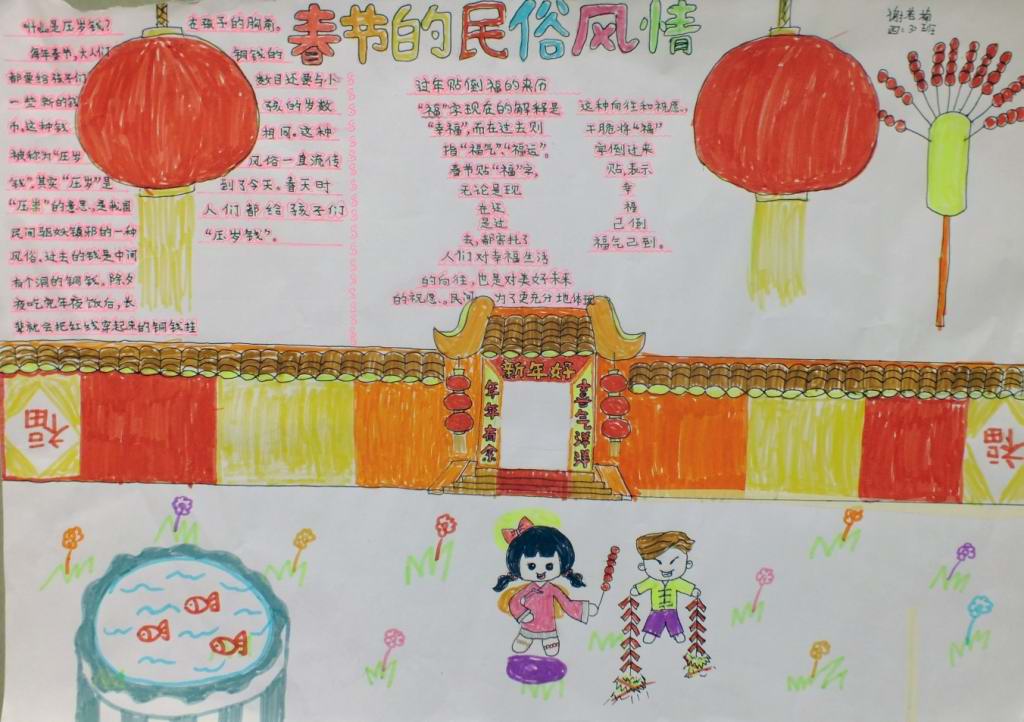 春节的民俗风情
谢若
四:3)班
什么是压岁钱?
每年春节,大人们
都要给孩子们
一些新的钱
币。这种钱
被称为“压岁
钱”。其实“压岁”是
“压祟”的意思,是我国
民间驱妖镇邪的一种
风俗。过去的钱是中间
有个洞的铜钱。除夕
夜吃完年夜饭后,长
辈就会把红线穿起来的铜钱挂
在孩子的胸前。
铜钱的
数目还要与小
孩的岁数
相同。这种
风俗一直流传
到了今天。春天时
人们都给孩子们
“压岁钱”。
过年贴倒福的来历
“福”字现在的解释是
“幸福”,而在过去则
指“福气”、“福运”。
春节贴“福”字,
无论是现
在还
是过
去,都寄托了
人们对幸福生活
的向往,也是对美好未来
的祝愿。民间为了更充分地体现
这种向往和祝愿,
干脆将“福”
字倒过来
贴,表示
幸
福
已倒
福气已到。
新年好
年年有余
喜气洋洋
福
福